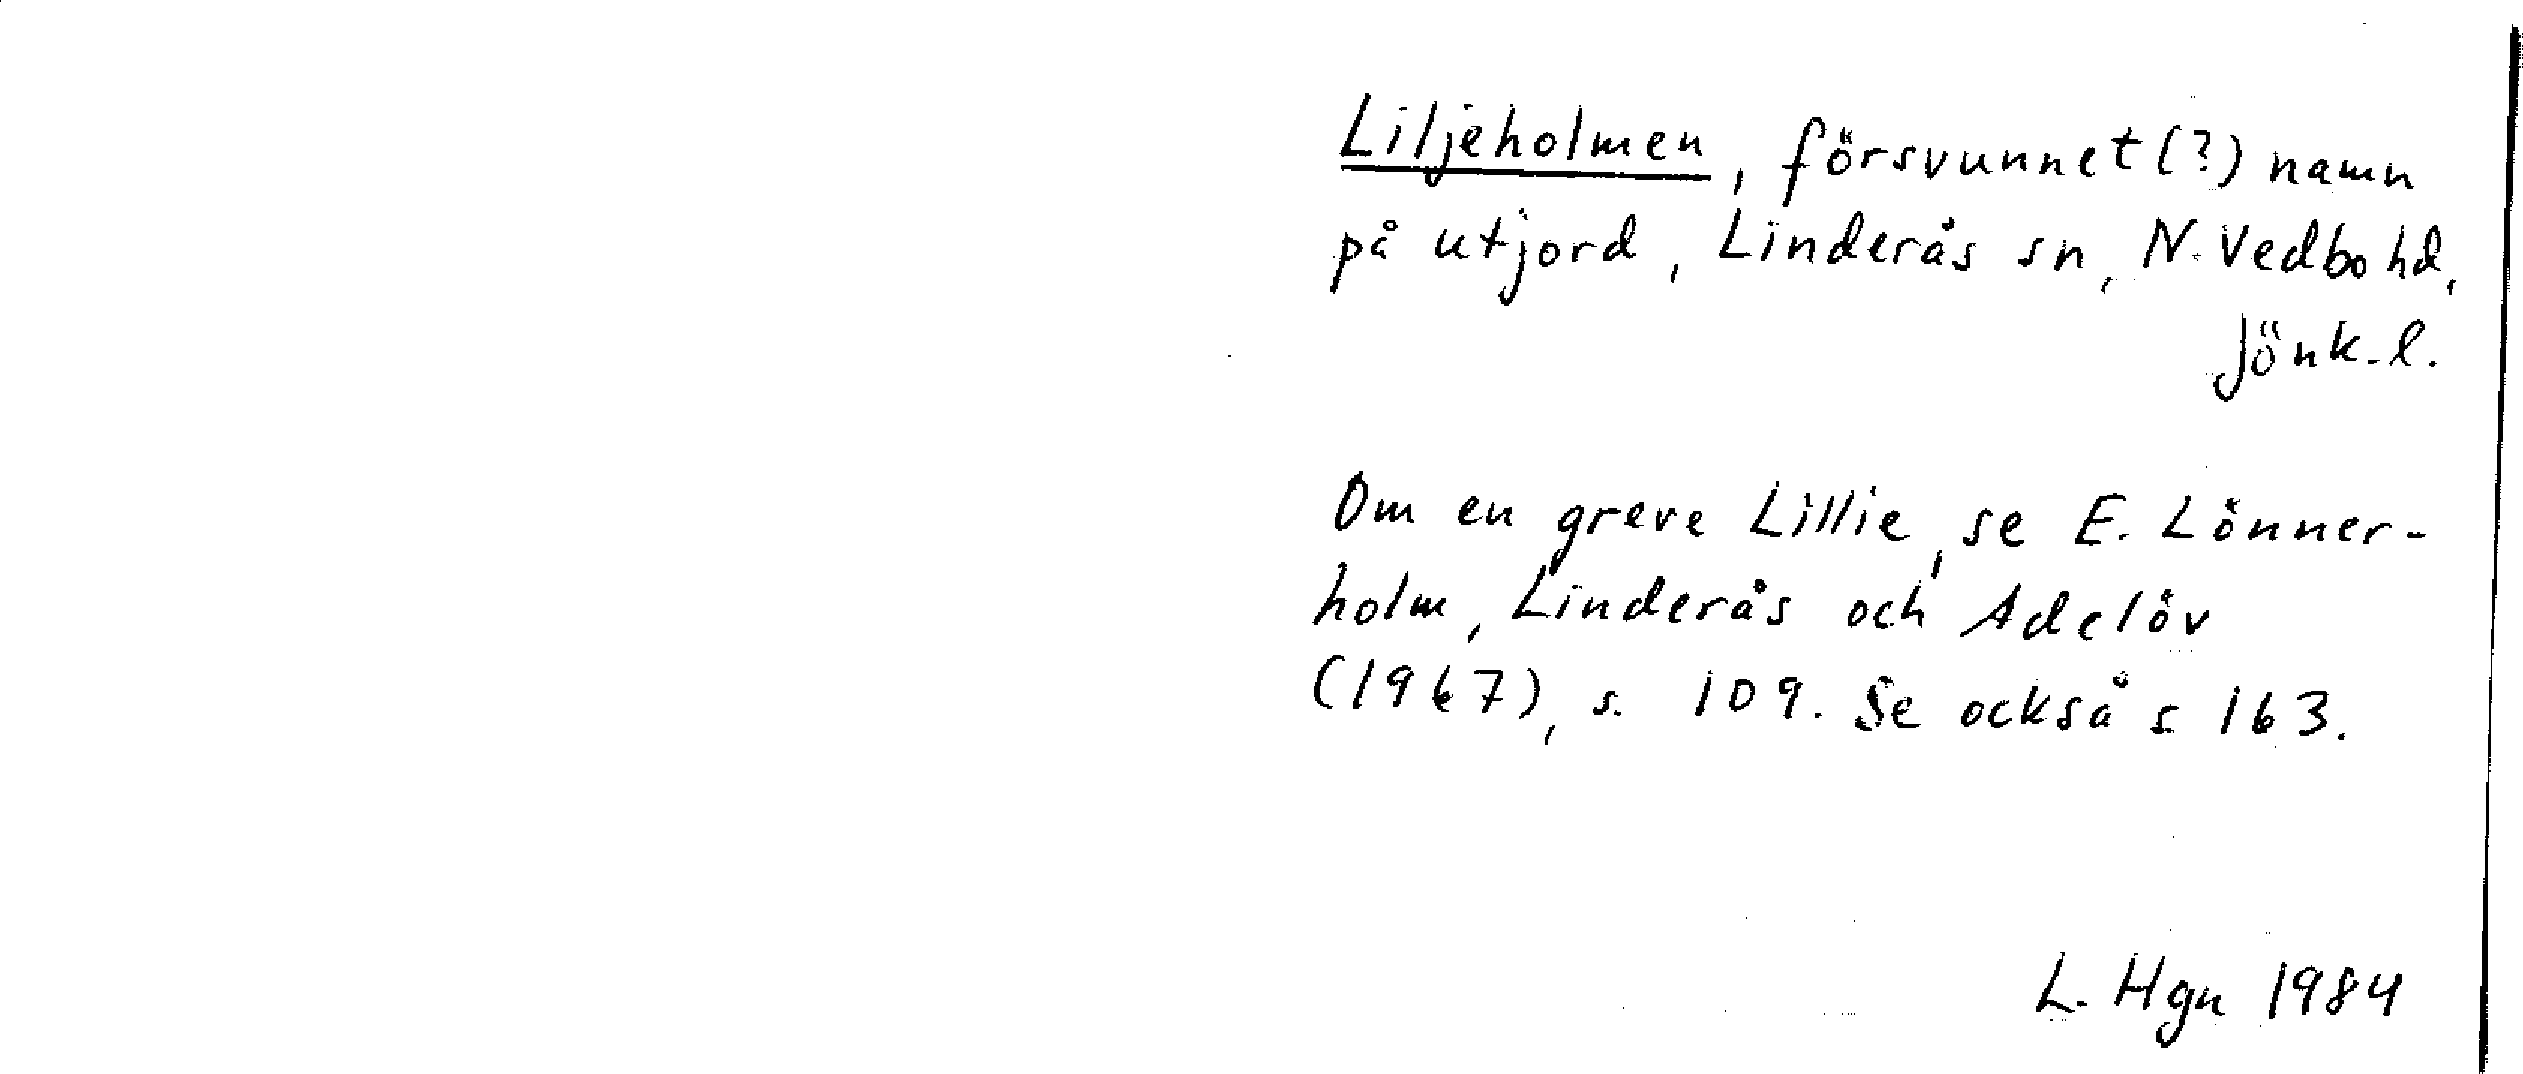 Liljeholmen, försvunnet(?) namn
på utjord, Linderås sn, N. Vedbo hd,
Jönk. l.
Om en greve Lillie, se E. Lönner-
holm, Linderås och Adelöv
(1967), s. 109. Se också s 163.
L. Hgn 1984